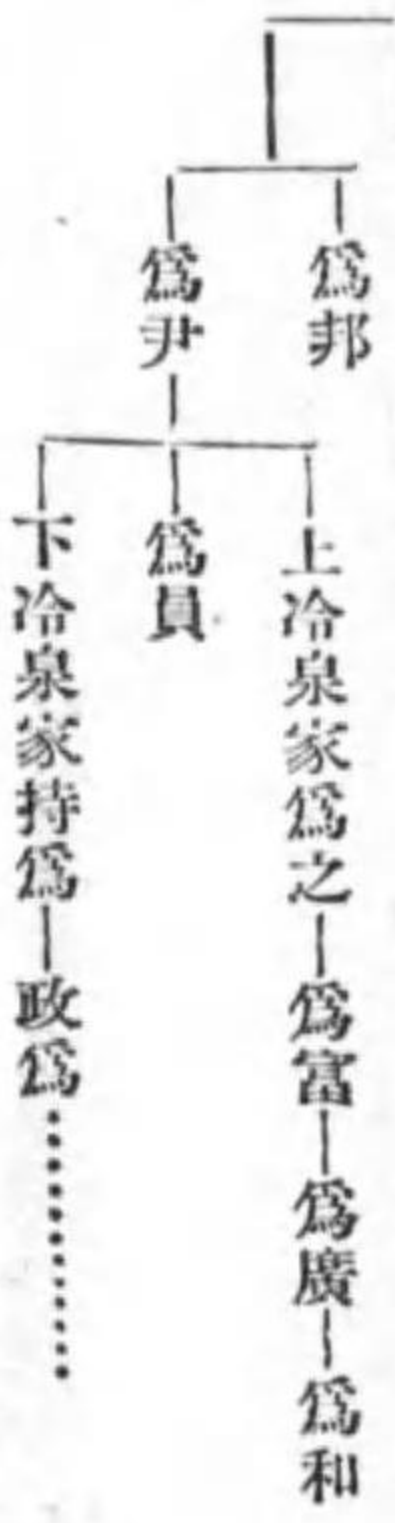 爲邦
爲尹
上冷泉家爲之―爲富―爲廣―爲和
爲員
下冷泉家持爲―政爲………